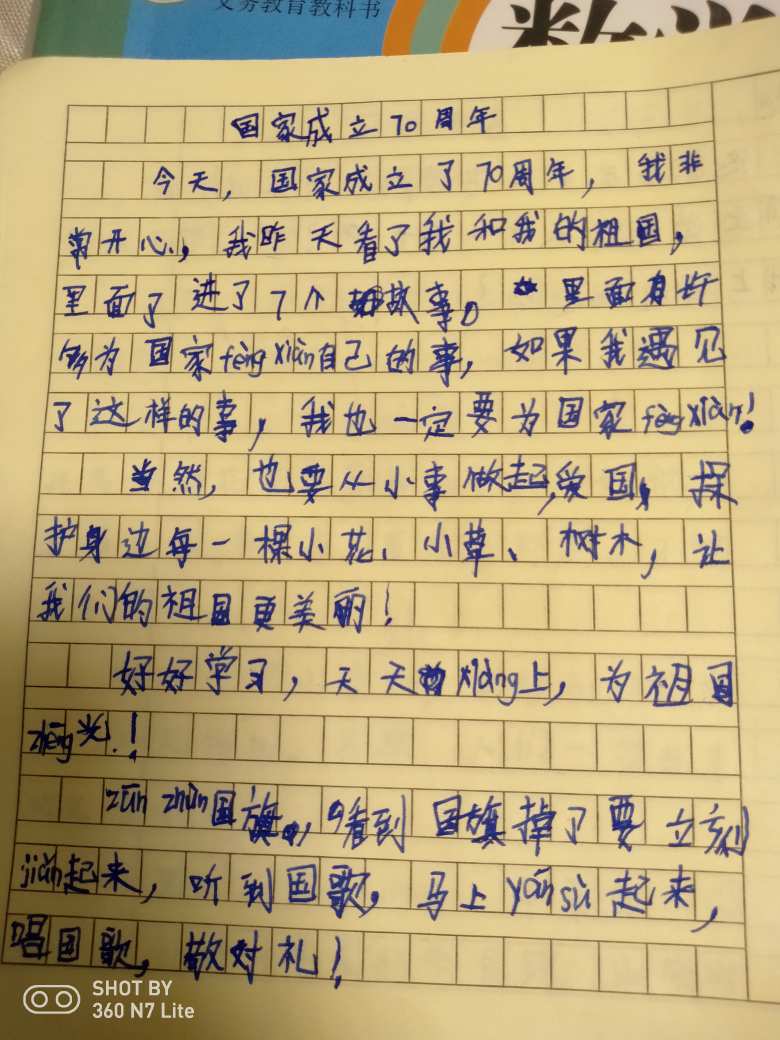 义务教育教科书
数学
国家成立70周年
今天，国家成立了70周年，我非
常开心，我昨天看了我和我的祖国，
里面了进了7个故事。里面有许
多为国家fèngxiàn自己的事，如果我遇见
了这样的事，我也一定要为国家fèngxiàn!
当然，也要从小事做起，爱国，保
护身边每一棵小花、小草、树木，让
我们的祖国更美丽！
好好学习，天天xiàng上，为祖国
zhēng光！
zūn zhòn国旗，看到国旗掉了要立刻
jiǎn起来，听到国歌，马上yánsù起来，
唱国歌，敬对礼！
SHOT BY
360 N7 Lite